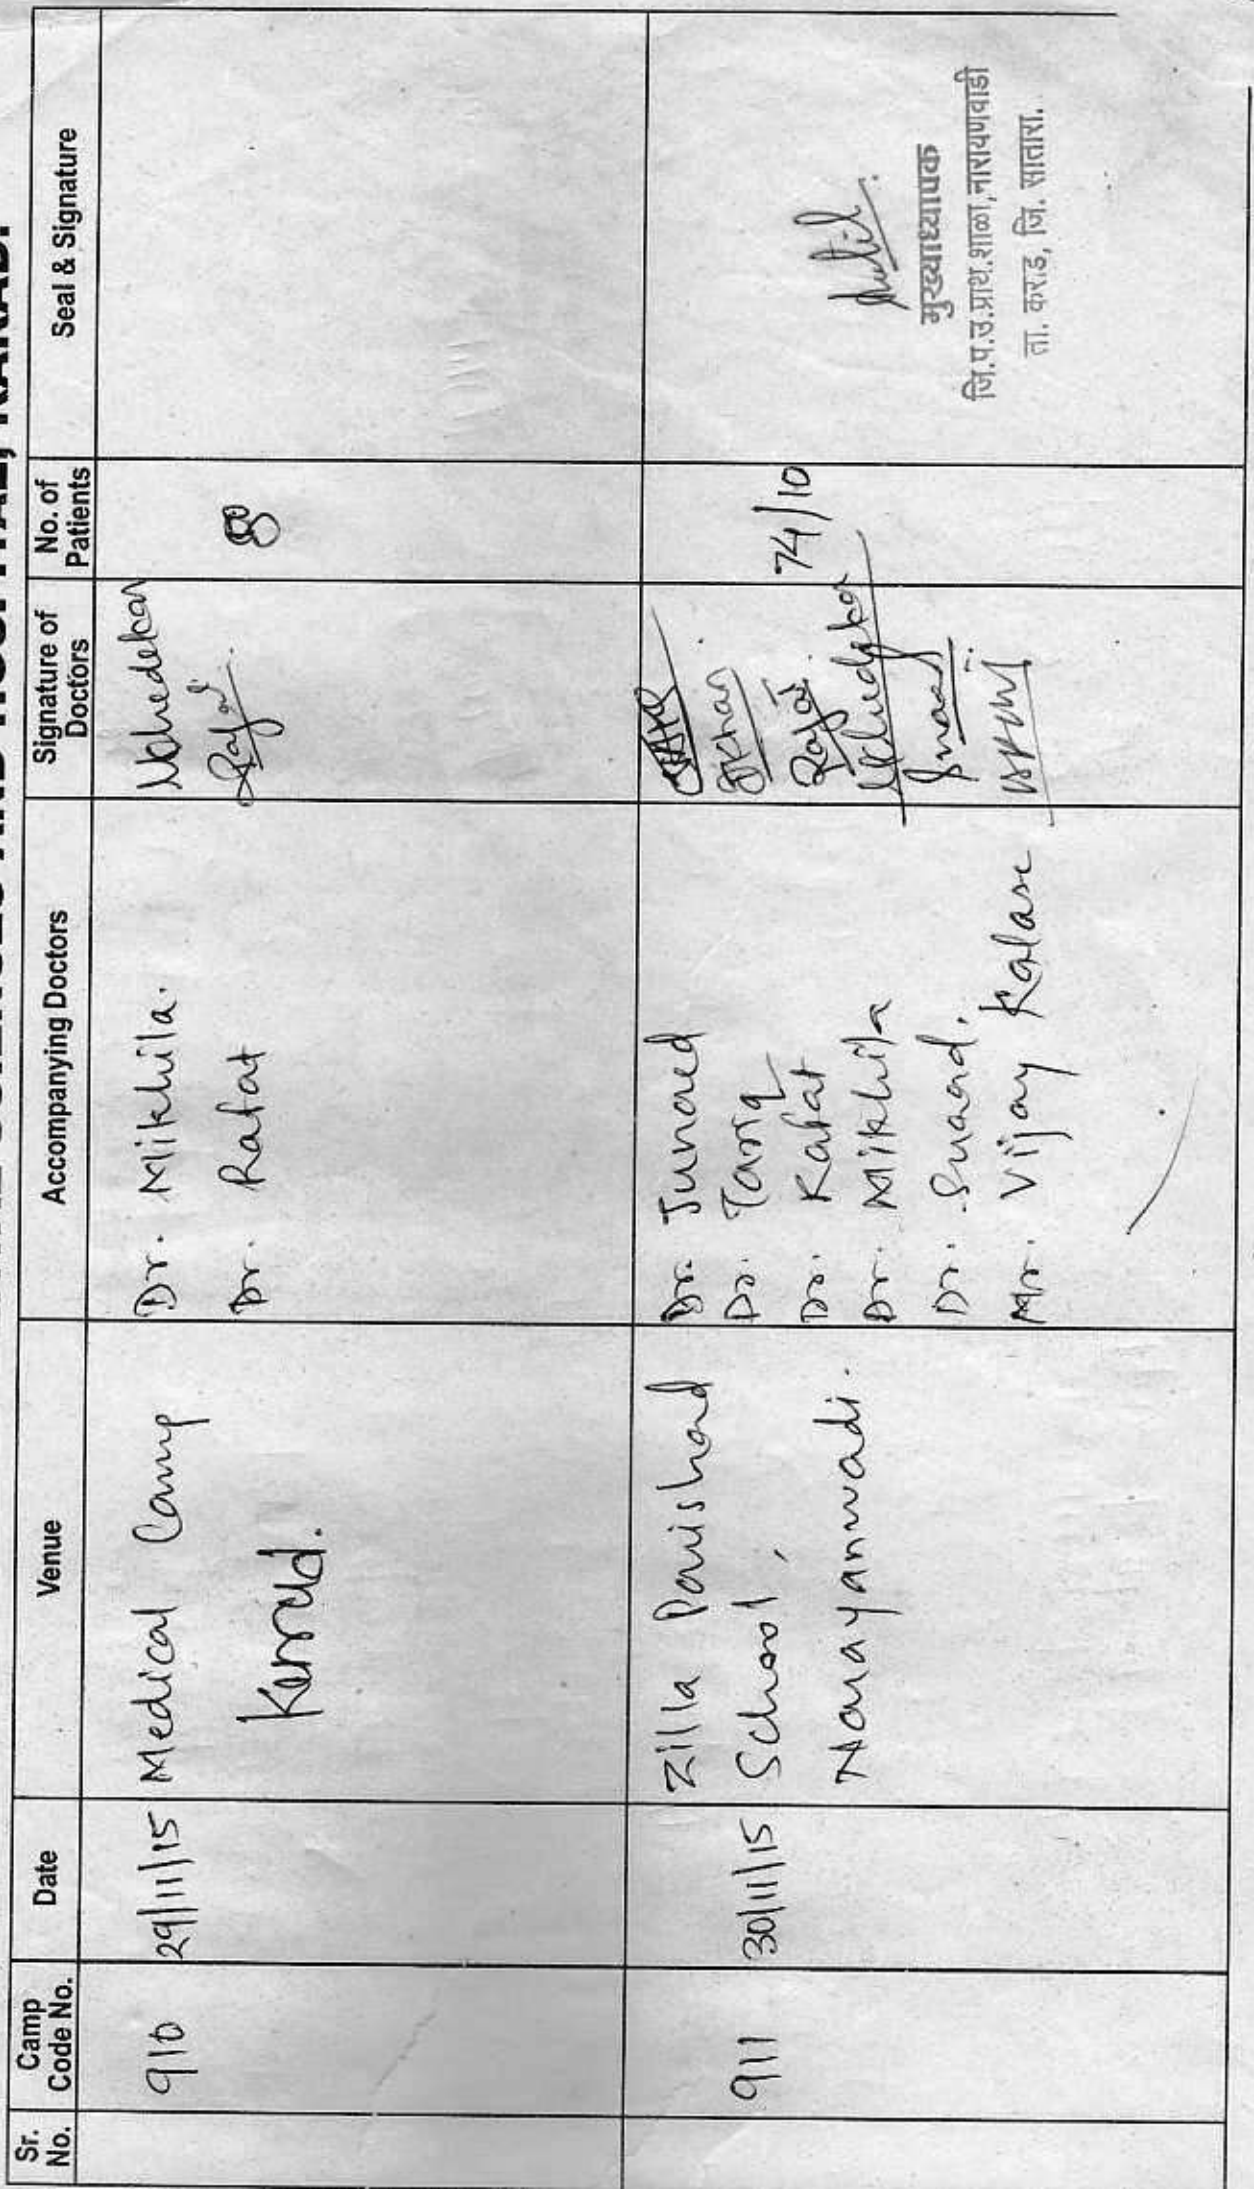 Sr. No.
Camp Code No.
Date
Venue
Accompanying Doctors
Signature of Doctors
No. of Patients
Seal & Signature
910
29/11/15
Medical Camp
Karad.
Dr. Mikhila.
Dr. Rafat
8
911
30/11/15
Zilla Parishad
School,
Narayanwadi.
Dr. Junaed
Dr. Tariq
Dr. Rafat
Dr. Mikhila
Dr. Suaad.
Mr. Vijay Kalase
JKhan
74/10
मुख्याध्यापक
जि.प.उ.प्राथ.शाळा, नारायणवाडी
ता. कराड, जि. सातारा.